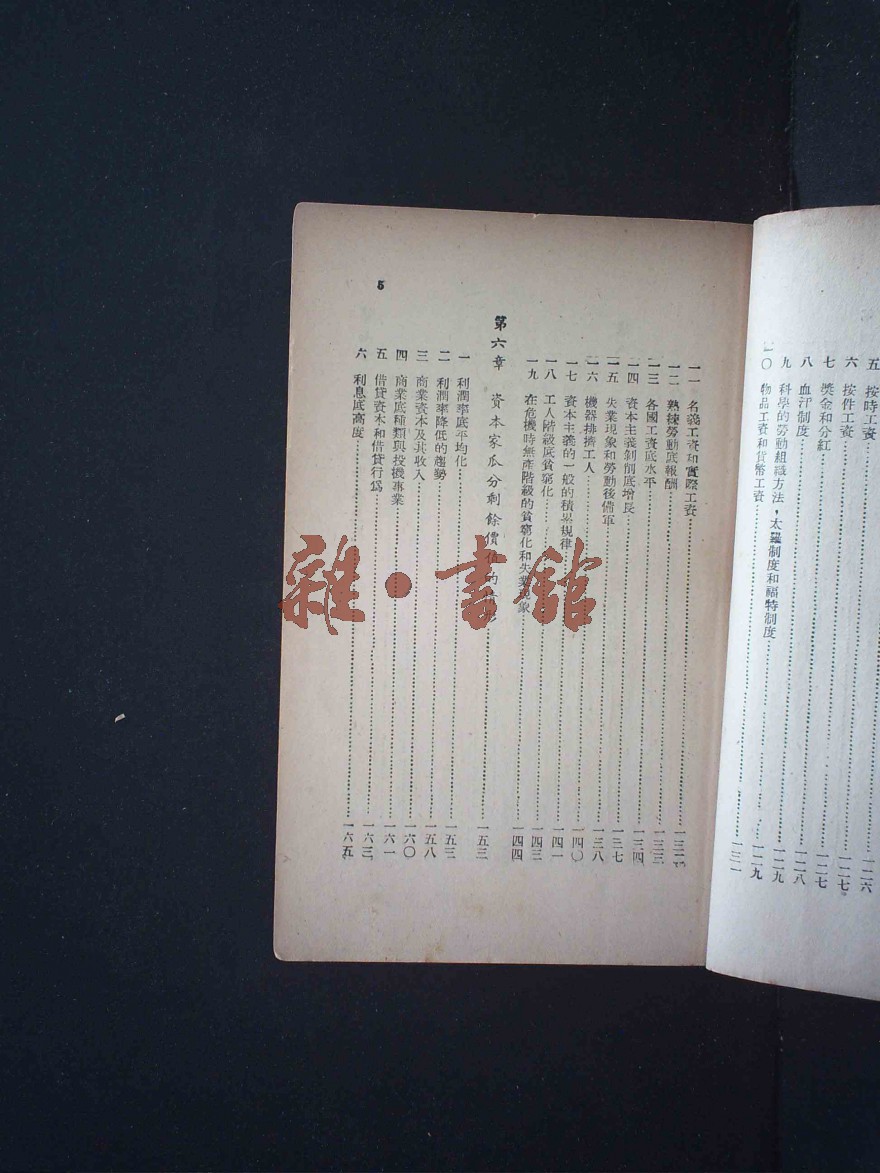 五 按時工資⋯⋯一二六
六 按件工資⋯⋯一二七
七 獎金和分紅⋯⋯一二七
八 血汗制度⋯⋯一二八
九 科學的勞動組織方法，太羅制度和福特制度⋯⋯一二九
一〇 物品工資和貨幣工資⋯⋯一二九
一三一
一一 名義工資和實際工資⋯⋯一三二
一二 熟練勞動底報酬⋯⋯一三三
一三 各國工資底水平⋯⋯一三四
一四 資本主義剝削底增長⋯⋯一三七
一五 失業現象和勞動後備軍⋯⋯一三八
一六 機器排擠工人⋯⋯一四〇
一七 資本主義的一般的積累規律⋯⋯一四一
一八 工人階級底貧窮化⋯⋯一四三
一九 在危機時無產階級的貧窮化和失業現象⋯⋯一四四
第六章 資本家瓜分剩餘價值的⋯⋯一五三
一 利潤率底平均化⋯⋯一五三
二 利潤率降低的趨勢⋯⋯一五八
三 商業資本及其收入⋯⋯一六〇
四 商業底種類與投機事業⋯⋯一六一
五 借貸資本和借貸行為⋯⋯一六三
六 利息底高度⋯⋯一六五
5
雜·書館